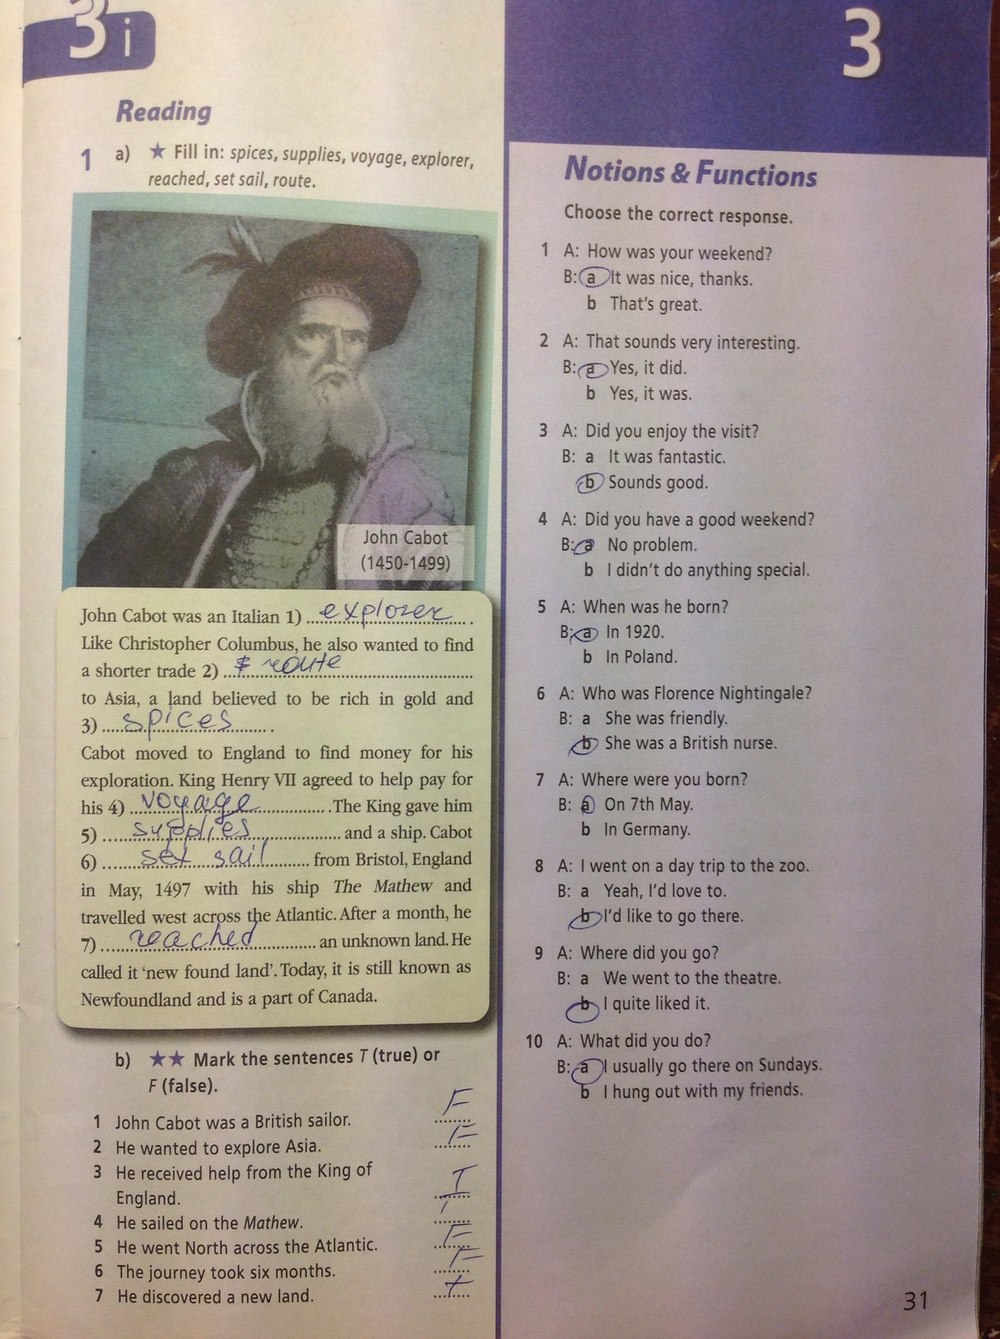 3 i
Reading
1 a) ★ Fill in: spices, supplies, voyage, explorer,
reached, set sail, route.
John Cabot
(1450-1499)
John Cabot was an Italian 1) explorer .
Like Christopher Columbus, he also wanted to find
a shorter trade 2) route
to Asia, a land believed to be rich in gold and
3) spices .
Cabot moved to England to find money for his
exploration. King Henry VII agreed to help pay for
his 4) voyage . The King gave him
5) supplies and a ship. Cabot
6) set sail from Bristol, England
in May, 1497 with his ship The Mathew and
travelled west across the Atlantic. After a month, he
7) reached an unknown land. He
called it 'new found land'. Today, it is still known as
Newfoundland and is a part of Canada.
b) ★★ Mark the sentences T (true) or
F (false).
1 John Cabot was a British sailor. F
2 He wanted to explore Asia. F
3 He received help from the King of
England. T
4 He sailed on the Mathew. T
5 He went North across the Atlantic. F
6 The journey took six months. F
7 He discovered a new land. t
3
Notions & Functions
Choose the correct response.
1 A: How was your weekend?
B: a It was nice, thanks.
b That's great.
2 A: That sounds very interesting.
B: a Yes, it did.
b Yes, it was.
3 A: Did you enjoy the visit?
B: a It was fantastic.
b Sounds good.
4 A: Did you have a good weekend?
B: a No problem.
b I didn't do anything special.
5 A: When was he born?
B: a In 1920.
b In Poland.
6 A: Who was Florence Nightingale?
B: a She was friendly.
b She was a British nurse.
7 A: Where were you born?
B: a On 7th May.
b In Germany.
8 A: I went on a day trip to the zoo.
B: a Yeah, I'd love to.
b I'd like to go there.
9 A: Where did you go?
B: a We went to the theatre.
b I quite liked it.
10 A: What did you do?
B: a I usually go there on Sundays.
b I hung out with my friends.
31